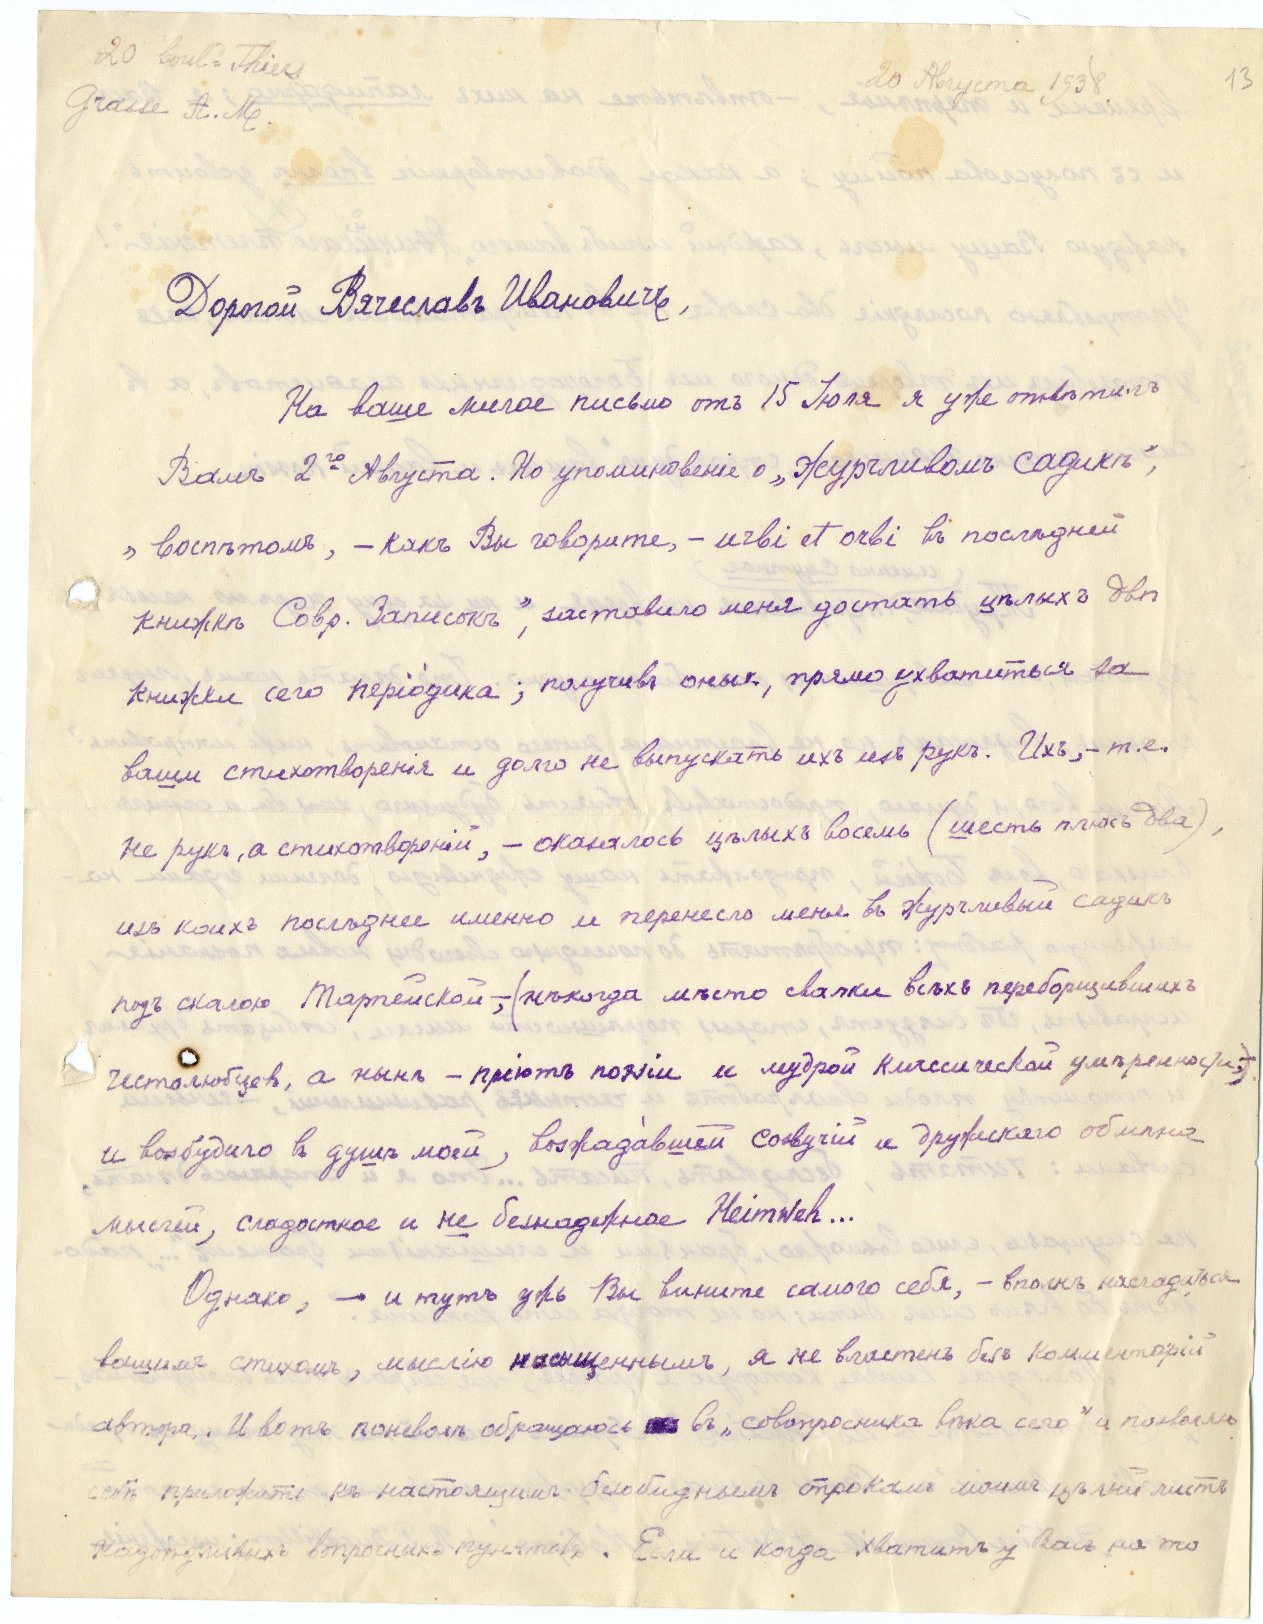 20 boul.d Thiers
Grasse A. M.
20 Августа 1938.
13
Дорогой Вячеславъ Ивановичъ,
На ваше милое письмо отъ 15 Iюля я уже отвѣтилъ
Вамъ 2го Августа. Но упоминовенiе о „журчливомъ садикѣ",
„воспѣтомъ, – какъ Вы говорите, – urbi et orbi въ послѣдней
книжкѣ Совр. Записокъ", заставило меня достать цѣлыхъ двѣ
книжки сего перiодика; получивъ оныя, прямо ухватиться за
ваши стихотворенiя и долго не выпускать ихъ изъ рукъ. Ихъ, – т.е.
не рукъ, а стихотворенiй, – оказалось цѣлыхъ восемь (шесть плюсъ два),
изъ коихъ послѣднее именно и перенесло меня въ журчливый садикъ
подъ скалою Тарпейской, – (нѣкогда мѣсто свалки всѣхъ переборщившихъ
честолюбцев, а нынѣ – прiютъ поэзiи и мудрой классической умѣренности, –)
и возбудило в душѣ моей, возжада́вшей созвучiй и дружескаго обмѣна
мыслей, сладостное и не безнадежное Heimweh...
Однако, – и тутъ ужъ Вы вините самого себя, – вполнѣ насладиться
вашимъ стихомъ, мыслiю насыщеннымъ, я не властенъ безъ комментарiй
автора. И вотъ поневолѣ обращаюсь въ „совопросника вѣка сего" и позволяю
себѣ приложить къ настоящимъ безобиднымъ строкамъ моимъ цѣлый листъ
надоѣдливыхъ вопросныхъ пунктовъ. Если и когда хватитъ у Васъ на то